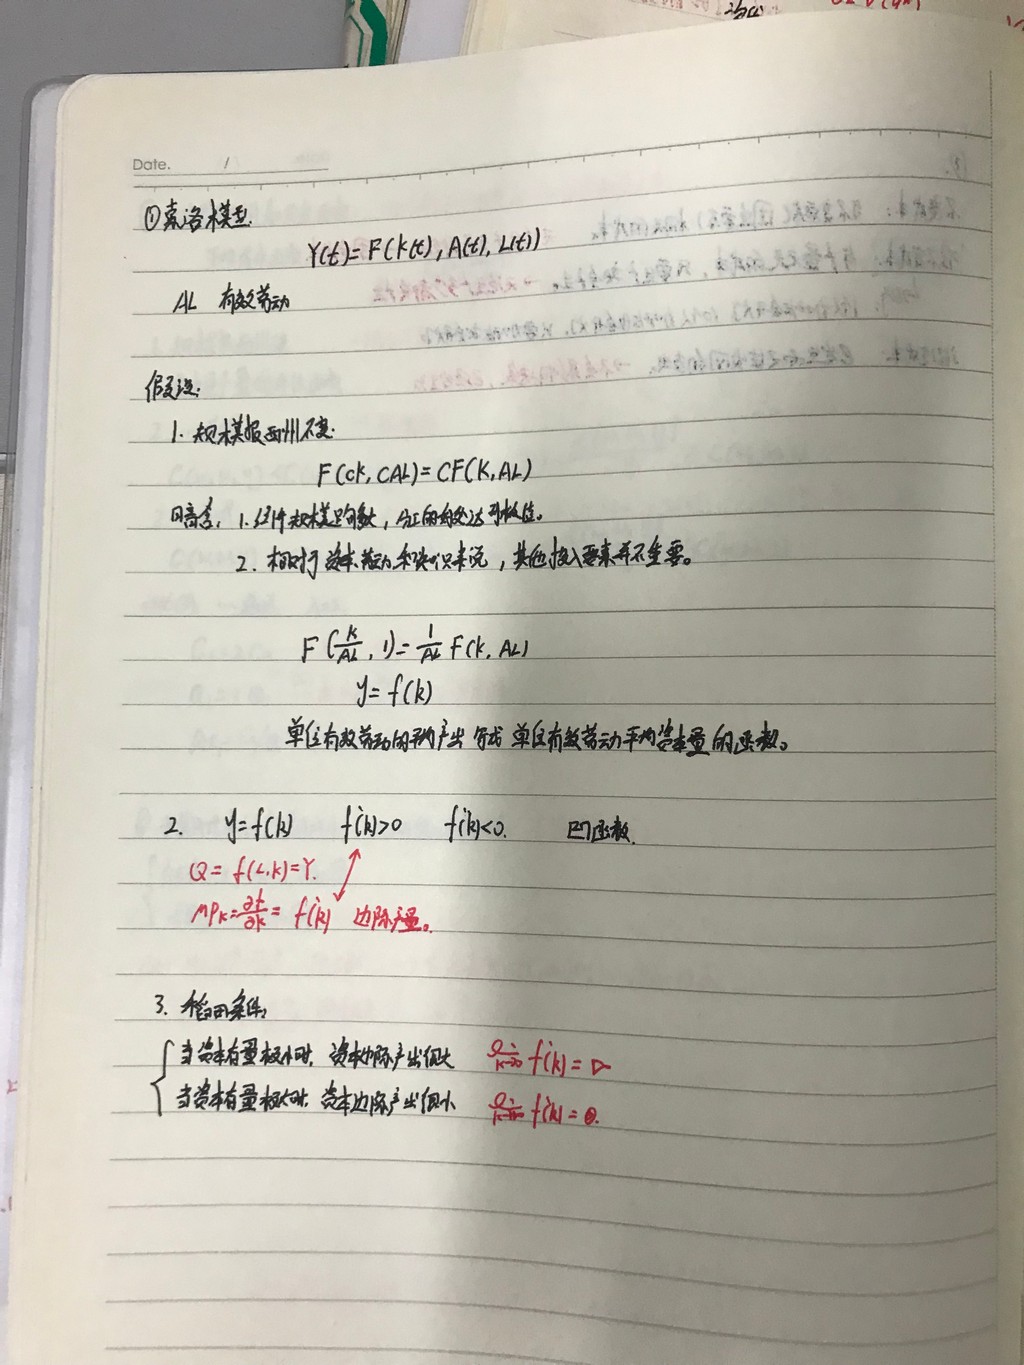 Date. /
①索洛模型.
Y(t)=F(K(t),A(t),L(t))
AL 有效劳动
假设:
1. 规模报酬不变.
F(CK,CAL)=CF(K,AL)
暗含, 1. 经济规模足够大,分工的好处达到极值。
2. 相对于资本、劳动和知识来说,其他投入要素并不重要。
F(K/AL,1)=1/AL F(K,AL)
y=f(k)
单位有效劳动的平均产出 写成 单位有效劳动平均资本量的函数。
2. y=f(k) f'(k)>0 f''(k)<0. 凹函数.
Q=f(L,K)=Y.
MPK=∂f/∂k=f'(k) 边际产量。
3. 稻田条件:
当资本存量极小时, 资本边际产出很大 lim k→0 f'(k)=∞
当资本存量极大时, 资本边际产出很小 lim k→∞ f'(k)=0.